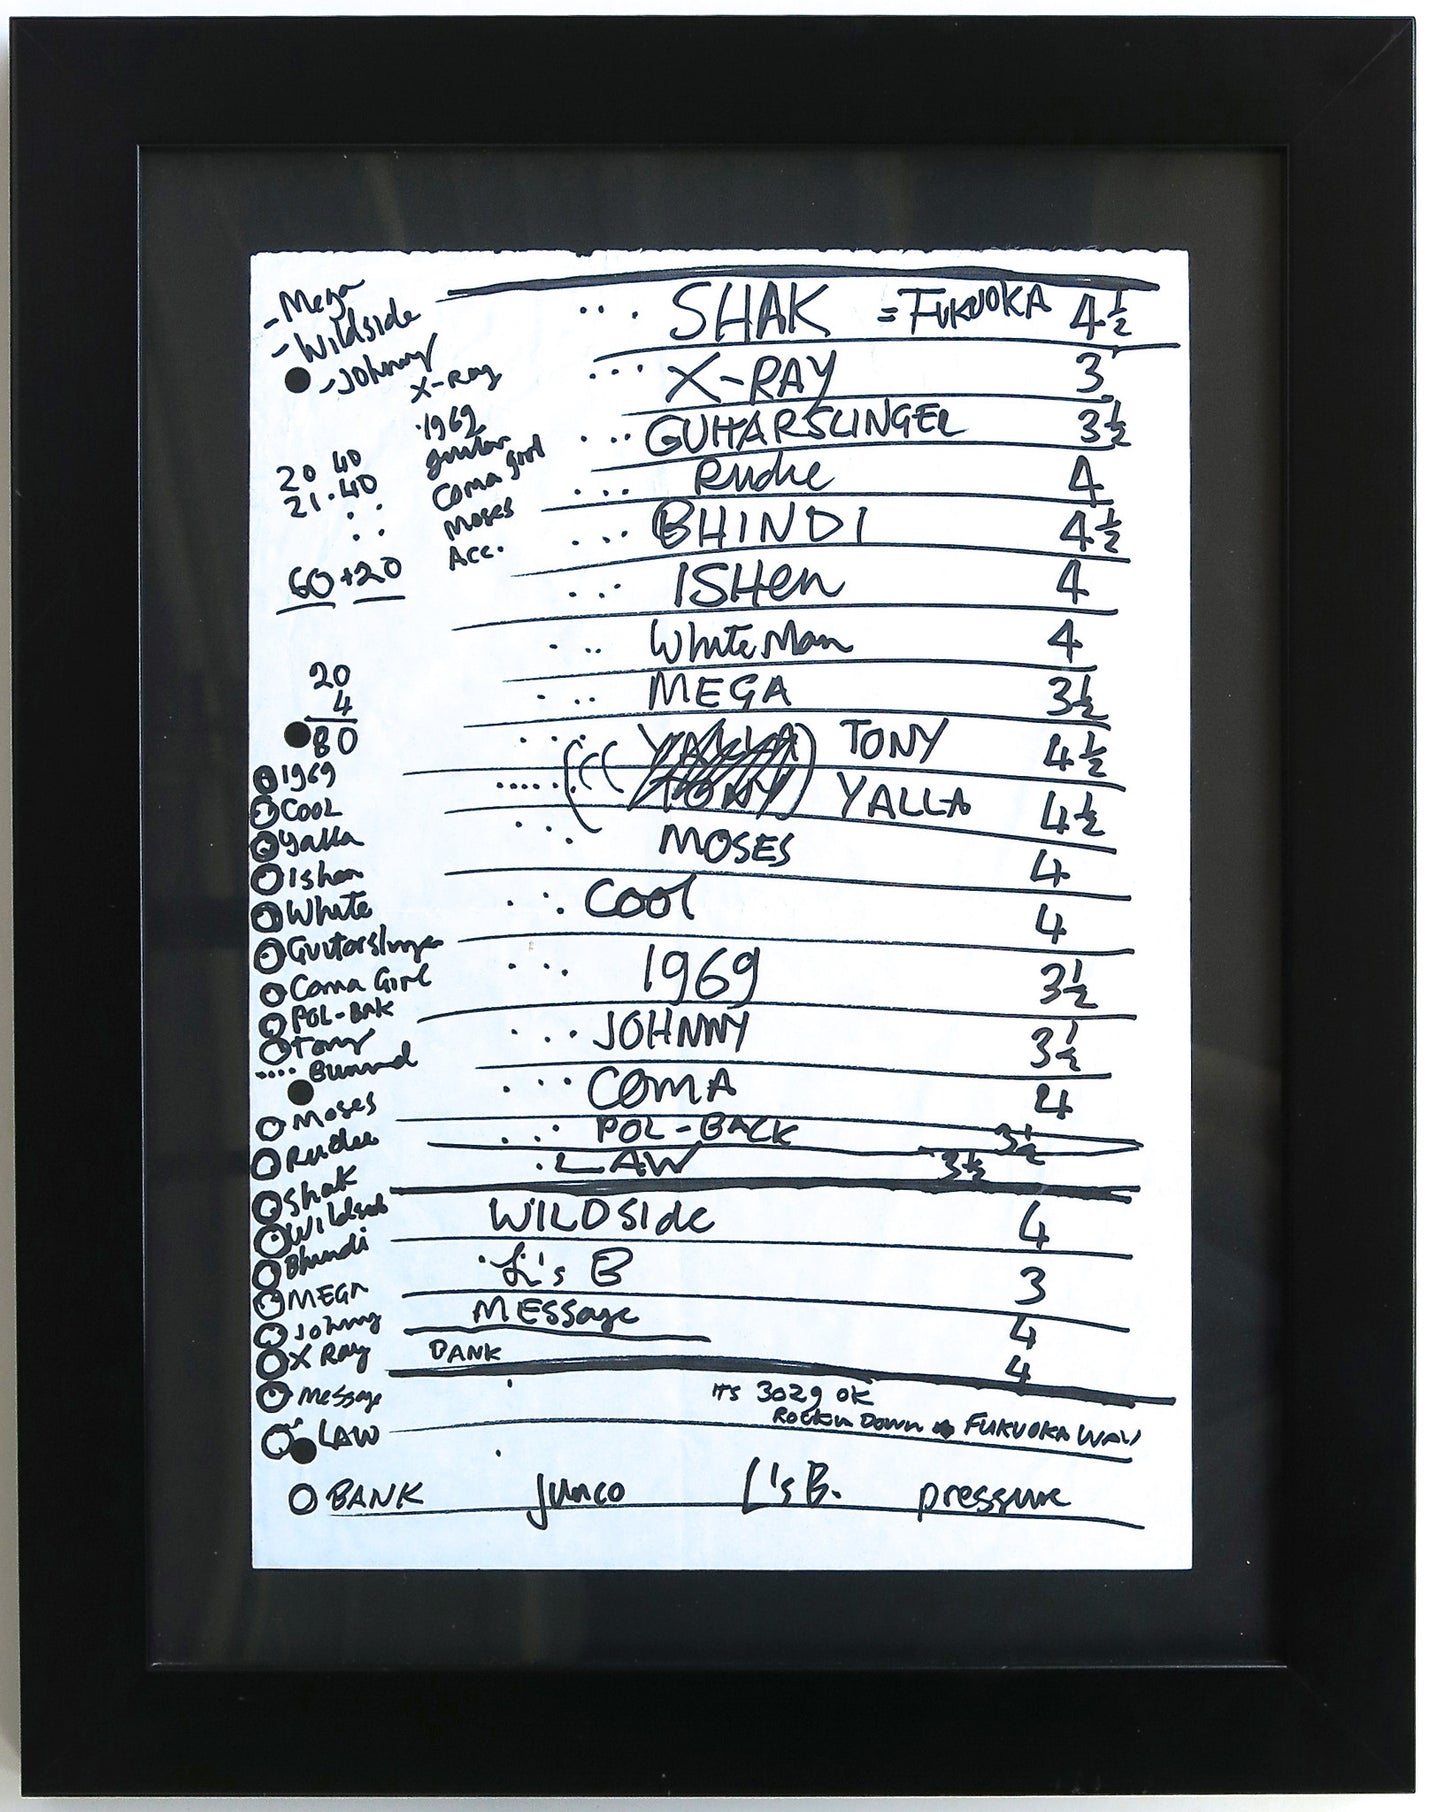 - Mega
- Wildside
- Johnny
X-Ray
1969
guitar
Coma Girl
Moses
Acc.
20 40
21.40
60 + 20
20
4
80
1969
COOL
Yalla
Ishen
White
Guitarslinger
Coma Girl
POL-BAK
Tony
Moses
Rudie
Shak
Wildside
Bhindi
MEGA
Johnny
X Ray
Message
LAW
BANK
SHAK = FUKUOKA 4 1/2
X-RAY 3
GUITARSLINGER 3 1/2
Rudie 4
BHINDI 4 1/2
ISHEN 4
White Man 4
MEGA 3 1/2
YALLA TONY 4 1/2
TONY YALLA 4 1/2
MOSES 4
COOL 4
1969 3 1/2
JOHNNY 3 1/2
COMA 4
POL-BACK 3 1/2
LAW 3 1/2
WILDSIDE 4
L's B 3
MESSAGE 4
BANK 4
ITS 3029 OK
Rockin Down FUKUOKA WAY
Junco L's B. pressure